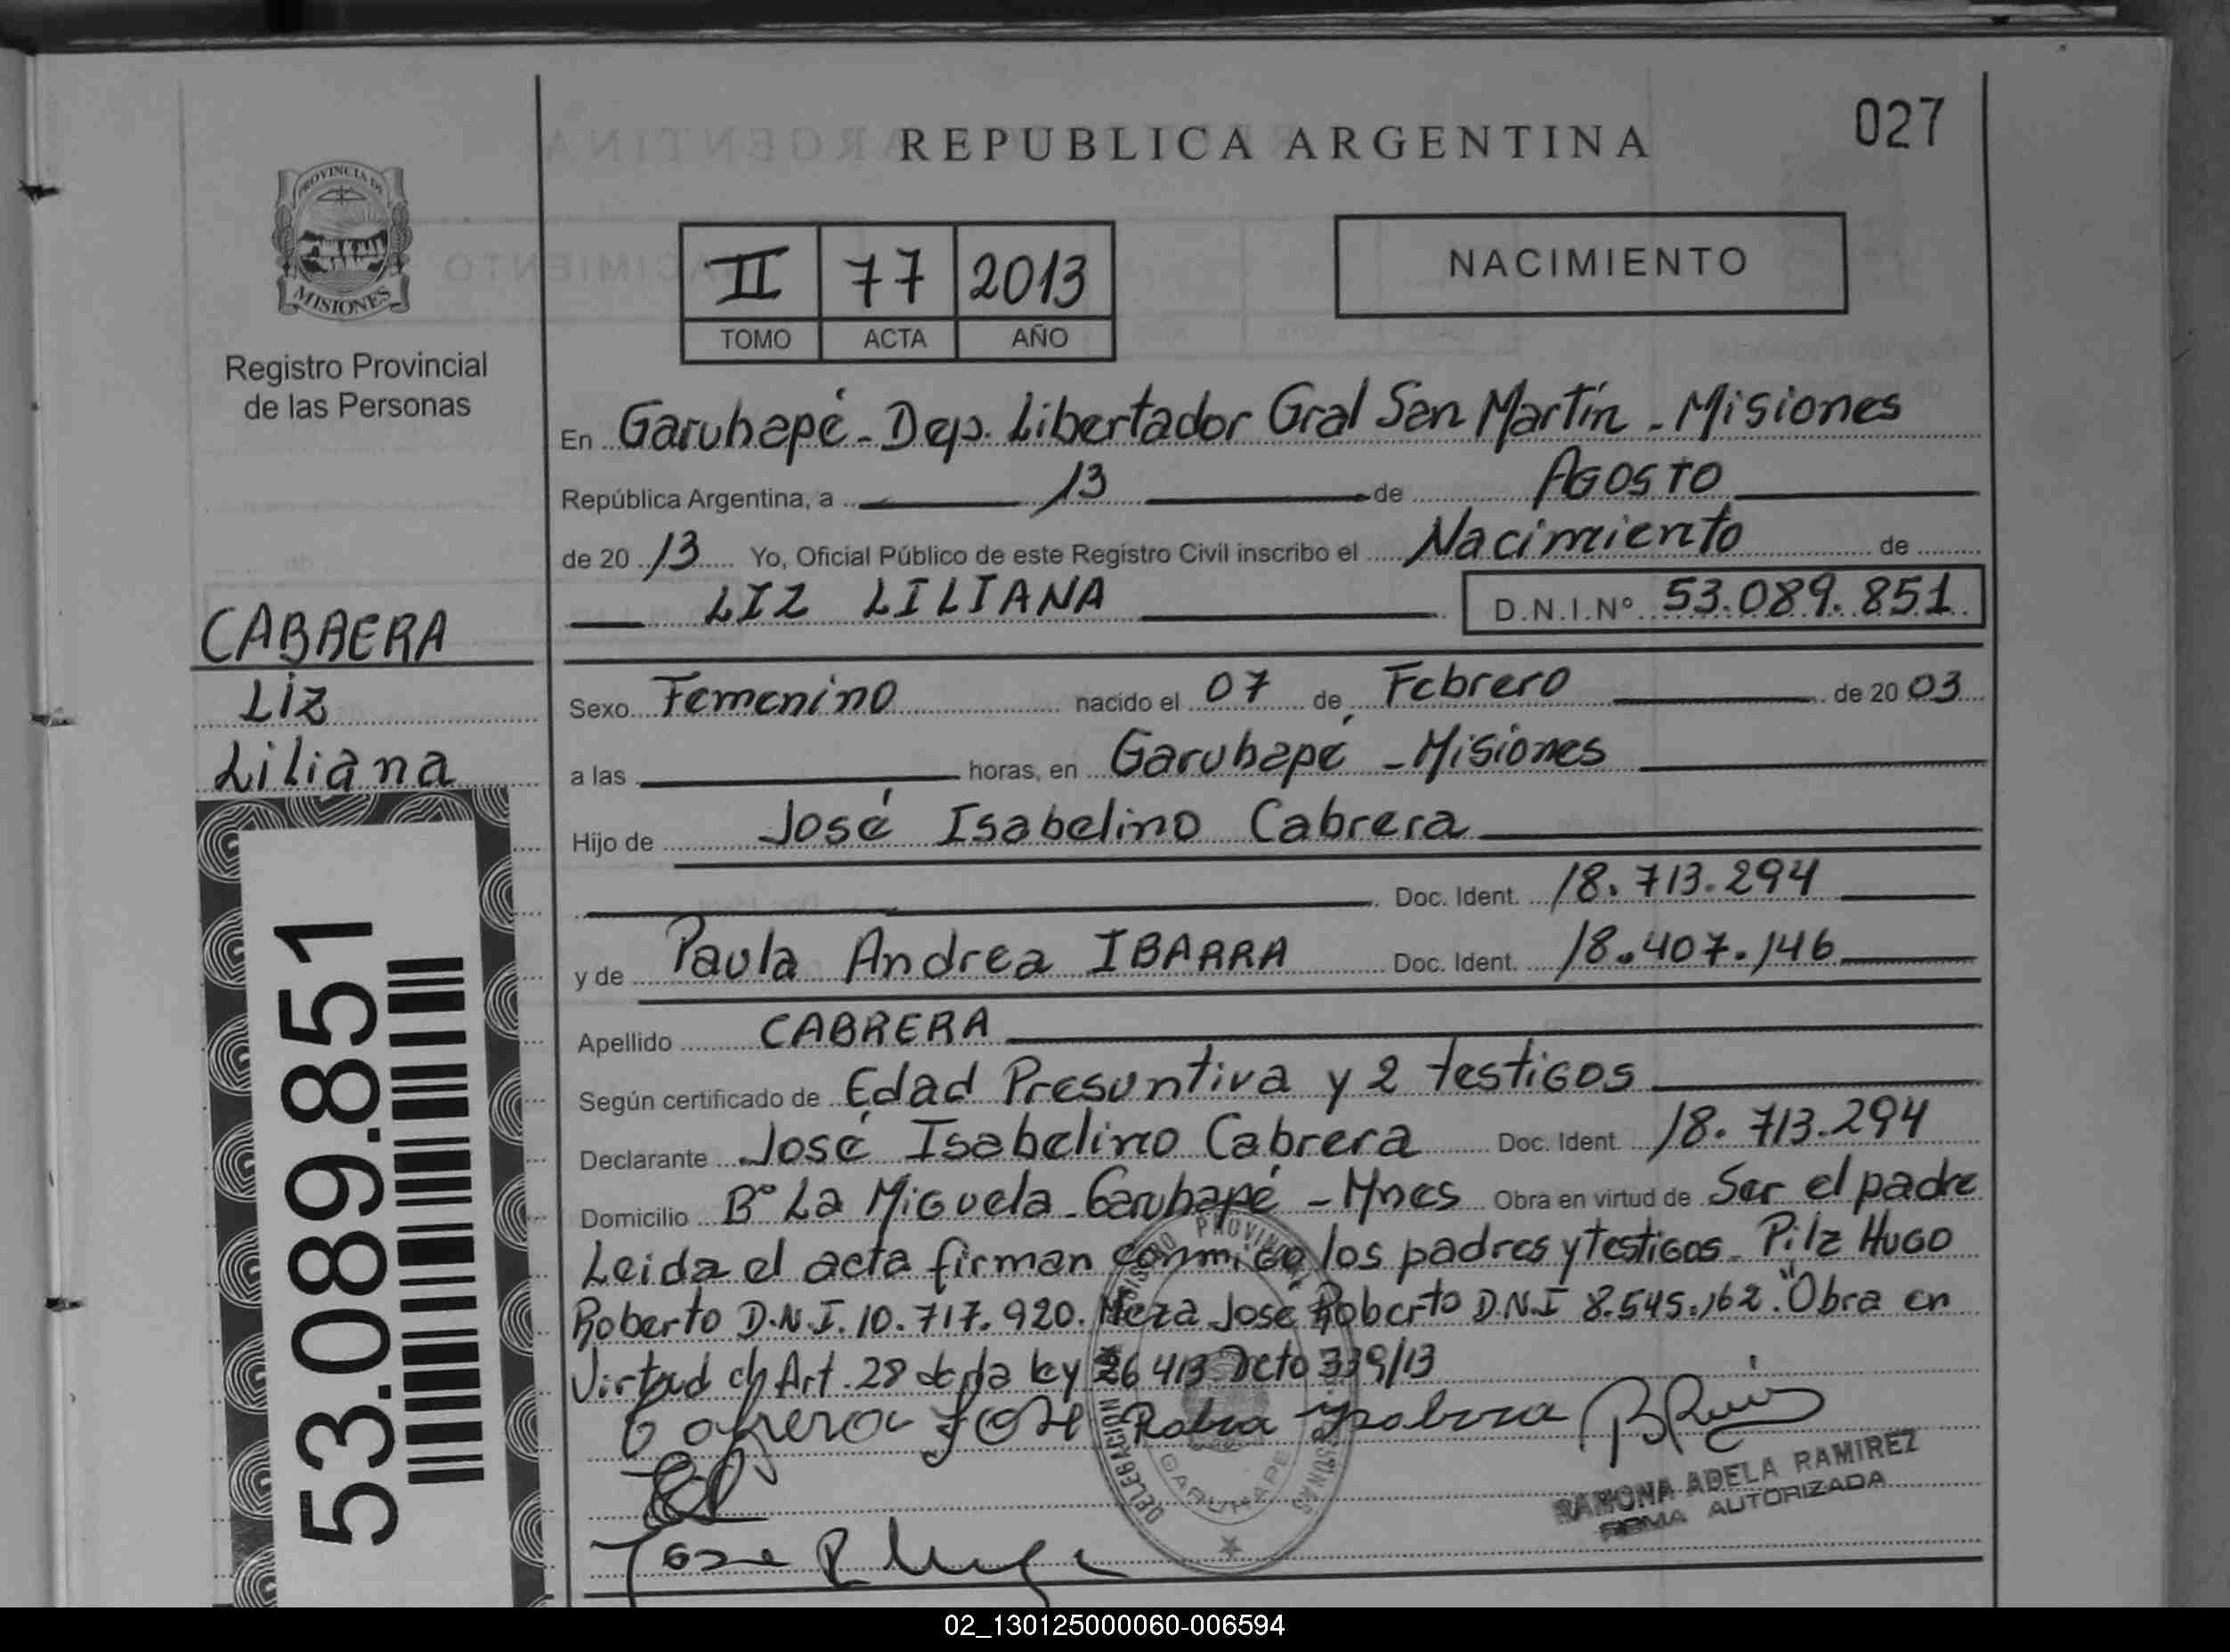 027
REPUBLICA ARGENTINA
PROVINCIA DE
MISIONES
Registro Provincial
de las Personas
II 77 2013
TOMO ACTA AÑO
NACIMIENTO
En Garuhapé - Dep. Libertador Gral San Martín - Misiones
República Argentina, a 13 de AGOSTO
de 20 13 Yo, Oficial Público de este Registro Civil inscribo el Nacimiento de
LIZ LILIANA D.N.I.Nº 53.089.851
CABRERA
Liz
Liliana
53.089.851
Sexo Femenino nacido el 07 de Febrero de 20 03
a las horas, en Garuhapé - Misiones
Hijo de José Isabelino Cabrera
Doc. Ident. 18.713.294
y de Paula Andrea IBARRA Doc. Ident. 18.407.146
Apellido CABRERA
Según certificado de Edad Presuntiva y 2 testigos
Declarante José Isabelino Cabrera Doc. Ident. 18.713.294
Domicilio Bº La Miguela - Garuhapé - Mnes Obra en virtud de Ser el padre
Leida el acta firman conmigo los padres y testigos - Pilz Hugo
Roberto D.N.I. 10.717.920. Meza Jose Roberto D.N.I 8.545.162. "Obra en
Virtud de Art. 28 de la ley 26 413 Dcto 339/13
Cabrera José
RAMONA ADELA RAMIREZ
FIRMA AUTORIZADA
DELEGACION
GARUHAPE
02_130125000060-006594